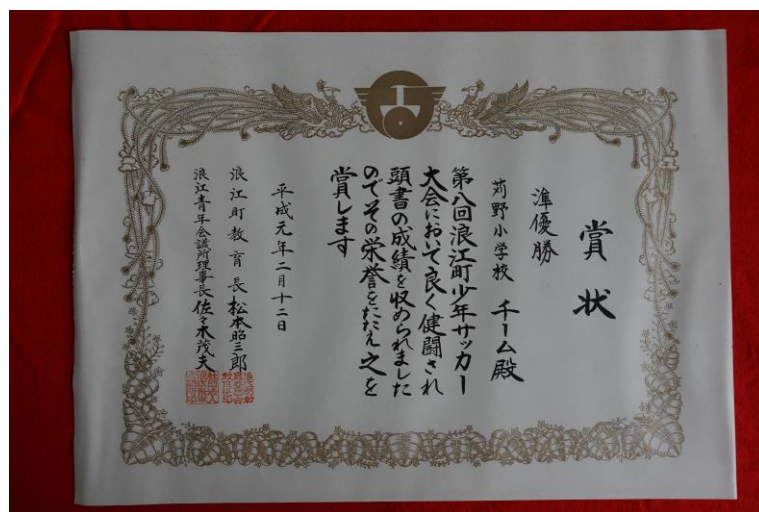 賞状
準優勝
苅野小学校 チーム殿
第八回浪江町少年サッカー
大会において良く健闘され
頭書の成績を収められました
のでその栄誉をたたえ之を
賞します
平成元年二月十二日
浪江町教育長 松本昭三郎
浪江青年会議所理事長 佐々木茂夫